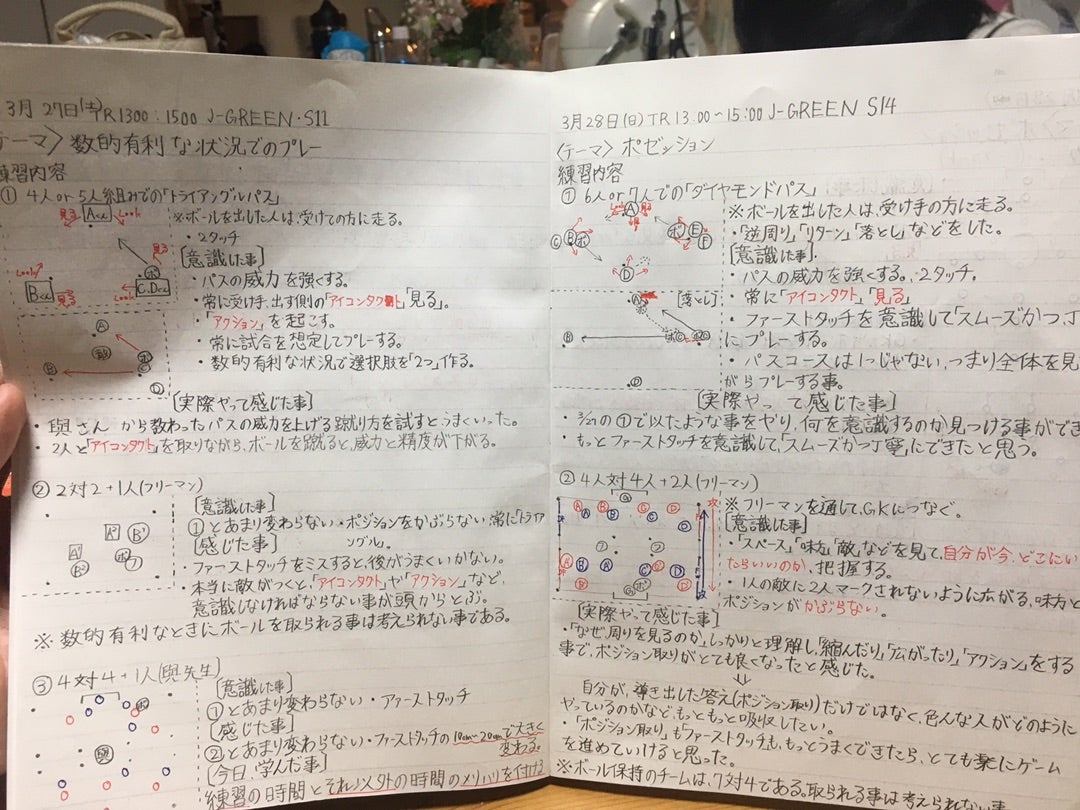 3月27日(土)TR1300:1500 J-GREEN・S11
テーマ〉数的有利な状況でのプレー
練習内容
① 4人or5人組みでの「トライアングルパス」
見る
Look
A
見る
ボ
Look
B
見る
Look
C,D
※ボールを出した人は、受けての方に走る。
・2タッチ
[意識した事]
・パスの威力を強くする。
・常に受け手、出す側の「アイコンタクト」「見る」。
・「アクション」を起こす。
・常に試合を想定してプレーする。
・数的有利な状況で選択肢を「2つ」作る。
A
敵
B
ボ
C
D
[実際やって感じた事]
・與さんから教わったパスの威力を上げる蹴り方を試すとうまくいった。
・2人と「アイコンタクト」を取りながら、ボールを蹴ると、威力と精度が下がる。
② 2対2+1人(フリーマン)
A'
B'
A'
B'
ボ
フ
[意識した事]
①とあまり変わらない・ポジションをかぶらない 常に「トライア
ングル。
[感じた事]
・ファーストタッチをミスすると、後がうまくいかない。
・本当に敵がつくと、「アイコンタクト」や「アクション」など、
意識しなければならない事が頭からとぶ。
※数的有利なときにボールを取られる事は考えられない事である。
③ 4対4+1人(與先生)
ボ
與
[意識した事]
①とあまり変わらない・ファーストタッチ
[感じた事]
②とあまり変わらない・ファーストタッチの10cm~20cmで大きく
変わる。
[今日、学んだ事]
練習の時間とそれ以外の時間のメリハリを付ける
3月28日(日)TR13:00~15:00 J-GREEN S14
〈テーマ〉ポゼッション
練習内容
① 6人or7人での「ダイヤモンドパス」
A
見る
C
B
ボ
ボ
E
F
D
※ボールを出した人は、受け手の方に走る。
・「逆周り」「リターン」「落とし」などをした。
[意識した事]
・パスの威力を強くする。・2タッチ。
・常に「アイコンタクト」「見る」
・ファーストタッチを意識して「スムーズかつ、丁
にプレーする。
・パスコースは1つじゃない、つまり全体を見
がらプレーする事。
A
[落とし]
B
ボ
C
D
[実際やって感じた事]
・3/27の①で以たような事をやり、何を意識するのか見つける事ができ
・もっとファーストタッチを意識して、「スムーズかつ丁寧」にできたと思う。
② 4人対4人+2人(フリーマン)
※フリーマンを通して、GKにつなぐ。
[意識した事]
・「スペース」「味方」「敵」などを見て、自分が今、どこにい
たらいいのか、把握する。
・1人の敵に2人マークされないように広がる、味方と
ポジションがかぶらない。
[実際やって感じた事]
・「なぜ、周りを見るのか」しっかりと理解し、「縮んだり」「広がったり」「アクション」をする
事で、ポジション取りがとても良くなったと感じた。
⇓
自分が、導き出した答え(ポジション取り)だけではなく、色んな人がどのように
やっているのかなど、もっともっと吸収したい。
・「ポジション取り」もファーストタッチも、もっとうまくできたら、とても楽にゲーム
を進めていけると思った。
※ボール保持のチームは、7対4である。取られる事は考えられない事